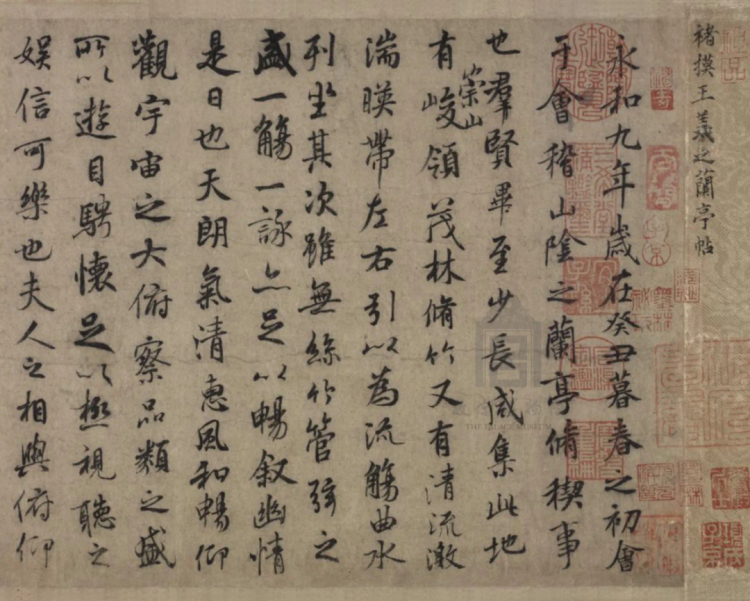 褚摸王羲之蘭亭帖
永和九年歲在癸丑暮春之初會
于會稽山陰之蘭亭脩稧事
也羣賢畢至少長咸集此地
有崇山峻領茂林脩竹又有清流激
湍暎帶左右引以為流觴曲水
列坐其次雖無絲竹管弦之
盛一觴一詠亦足以暢敘幽情
是日也天朗氣清惠風和暢仰
觀宇宙之大俯察品類之盛
所以遊目騁懷足以極視聽之
娛信可樂也夫人之相與俯仰
THE PALACE MUSEUM